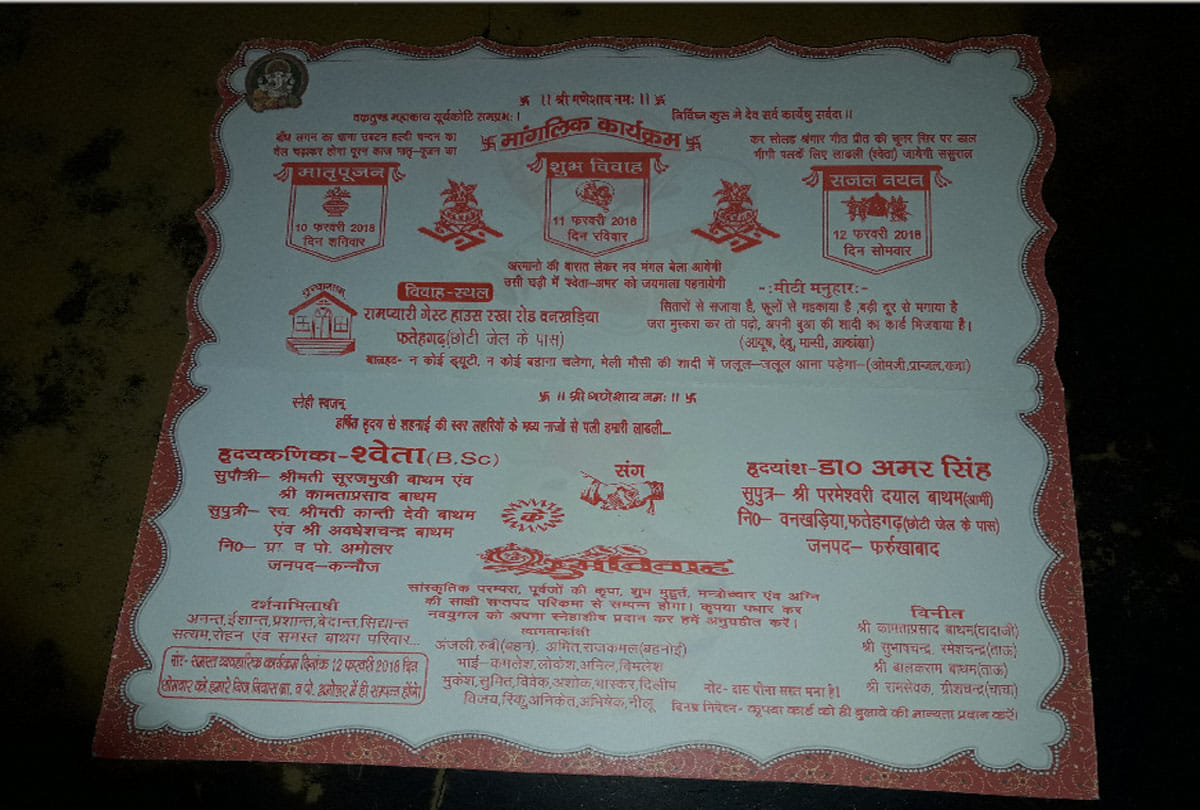 卐 ।। श्री गणेशाय नमः ।। 卐
वक्रतुण्ड महाकाय सूर्यकोटि समप्रभः।
निर्विघ्न कुरू मे देव सर्व कार्येषु सर्वदा।।
卐 मांगलिक कार्यक्रम 卐
बाँध लगन का धागा उबटन हल्दी चन्दन का
तेल चढ़ाकर होगा पूरन काज मातृ-पूजन का
कर सोलह श्रंगार गीत प्रीत की चुनर सिर पर डाल
भीगी पलकें लिए लाडली (श्वेता) जायेगी ससुराल
मातृपूजन
10 फरवरी 2018
दिन शनिवार
शुभ विवाह
11 फरवरी 2018
दिन रविवार
सजल नयन
12 फरवरी 2018
दिन सोमवार
अरमानो की बारात लेकर नव मंगल बेला आयेगी
उसी घड़ी में 'श्वेता-अमर' को जयमाला पहनायेगी
विवाह-स्थल
रामप्यारी गेस्ट हाउस रखा रोड वनखड़िया
फतेहगढ़(छोटी जेल के पास)
-:मीठी मनुहार:-
सितारों से सजाया है, फूलों से महकाया है ,बड़ी दूर से मगाया है
जरा मुस्करा कर तो पढ़ो, अपनी बुआ की शादी का कार्ड भिजवाया है।
(आयूष, देवू, मान्सी, आकांक्षा)
बालहठ- न कोई ड्यूटी, न कोई बहाना चलेगा, मेली मौसी की शादी में जलूल-जलूल आना पड़ेगा-(ओमजी,प्रान्जल,राजा)
卐 ।। श्री गणेशाय नमः ।। 卐
स्नेही स्वजन्
हर्षित हृदय से शहनाई की स्वर लहरियों के मध्य नाजों से पली हमारी लाडली...
हृदयकणिका-श्वेता(B.Sc)
सुपौत्री- श्रीमती सूरजमुखी बाथम एंव
श्री कामताप्रसाद बाथम
सुपुत्री- स्व. श्रीमती कान्ती देवी बाथम
एंव श्री अवधेशचन्द्र बाथम
नि0- ग्रा. व पो. अमोलर
जनपद-कन्नौज
संग
हृदयांश-डा0 अमर सिंह
सुपुत्र- श्री परमेश्वरी दयाल बाथम(आर्मी)
नि0- वनखड़िया,फतेहगढ़(छोटी जेल के पास)
जनपद- फर्रुखाबाद
के
शुभविवाह
सांस्कृतिक परम्परा, पूर्वजों की कृपा, शुभ मुहुर्त, मन्त्रोच्चार एंव अग्नि
की साक्षी सप्तपद परिक्रमा से सम्पन्न होगा। कृपया पधार कर
नवयुगल को अपना स्नेहाशीष प्रदान कर हमें अनुग्रहीत करें।
दर्शनाभिलाषी
अनन्त,ईशान्त,प्रशान्त,वेदान्त,सिद्यान्त
सत्यम,रोहन एंव समस्त बाथम परिवार...
नोट- समस्त व्यवहारिक कार्यक्रम दिनांक 12 फरवरी 2018 दिन
सोमवार को हमारे निज निवास ग्रा. व पो. अमोलर में ही सम्पन्न होंगे।
स्वागताकांक्षी
अंजली,रुबी(बहन), अमित,राजकमल(बहनोई)
भाई-कमलेश,लोकेश,अनिल,विमलेश
मुकेश,सुमित,विवेक,अशोक,भास्कर,दिलीप
विजय,रिंकु,अनिकेत,अभिषेक,नीलू
विनीत
श्री कामताप्रसाद बाथम(दादाजी)
श्री सुभाषचन्द्र, रमेशचन्द्र(ताऊ)
श्री बालकराम बाथम(ताऊ)
श्री रामसेवक, ग्रीशचन्द्र(चाचा)
नोट- दारू पीना सख्त मना है।
विनम्र निवेदन- कृपया कार्ड को ही बुलावे की मान्यता प्रदान करें।